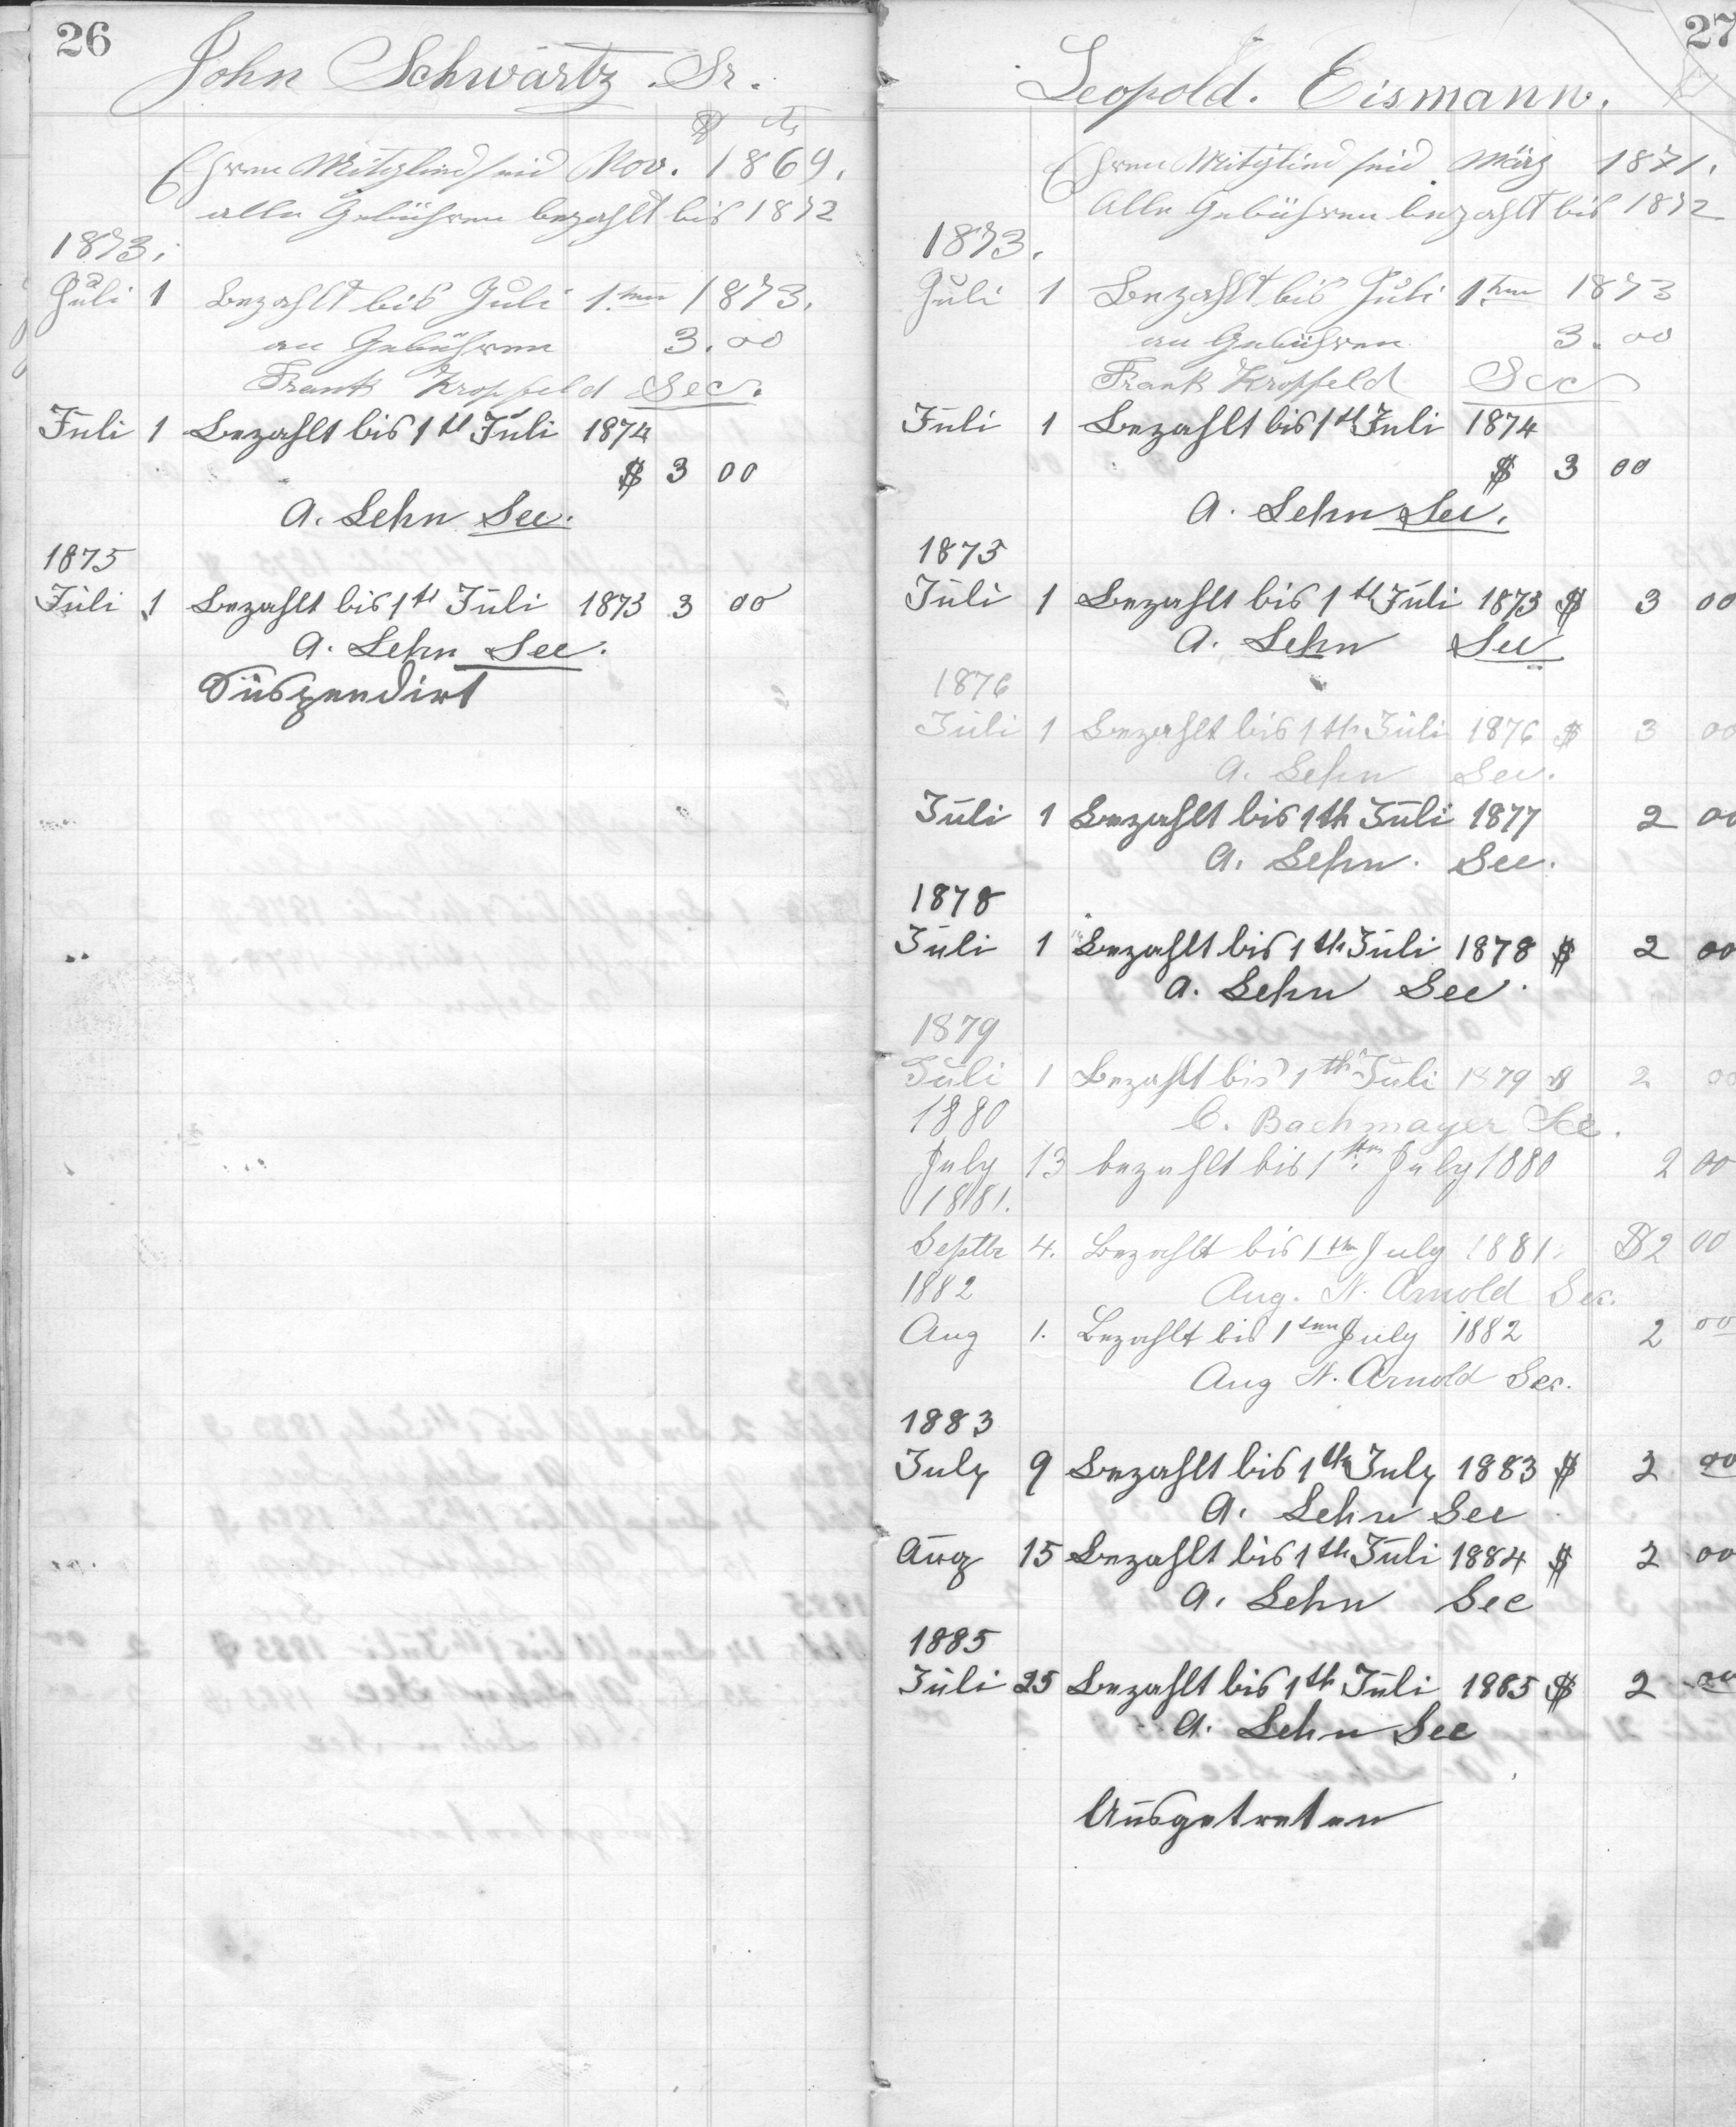 26
John Schwartz. Sr.
$ cts
Ehren Mitglied seid Nov. 1869.
alle Gebühren bezahlt bis 1872
1873.
Juli 1 Bezahlt bis Juli 1ten 1873.
an Gebühren 3.00
Frank Kropfeld Sec.
Juli 1 Bezahlt bis 1th Juli 1874
$ 3 00
A. Lehn Sec.
1875
Juli 1 Bezahlt bis 1th Juli 1875 3 00
A. Lehn Sec.
Suspendirt
27
Leopold. Eismann.
Ehren Mitglied seid März 1871.
Alle Gebühren bezahlt bis 1872
1873.
Juli 1 Bezahlt bis Juli 1ten 1873
an Gebühren 3.00
Frank Kropfeld Sec
Juli 1 Bezahlt bis 1th Juli 1874
$ 3 00
A. Lehn Sec.
1875
Juli 1 Bezahlt bis 1th Juli 1875 $ 3 00
A. Lehn Sec
1876
Juli 1 Bezahlt bis 1th Juli 1876 $ 3 00
A. Lehn Sec.
Juli 1 Bezahlt bis 1th Juli 1877 2 00
A. Lehn. Sec.
1878
Juli 1 Bezahlt bis 1th Juli 1878 $ 2 00
A. Lehn Sec.
1879
Juli 1 Bezahlt bis 1th Juli 1879 $ 2 00
1880 C. Bachmayer Sec.
July 13 bezahlt bis 1ten July 1880 2 00
1881.
Septbr 4. Bezahlt bis 1ten July 1881. $2 00
1882 Aug. N. Arnold Sec.
Aug 1. Bezahlt bis 1ten July 1882 2 00
Aug N. Arnold Sec.
1883
July 9 Bezahlt bis 1th July 1883 $ 2 00
A. Lehn Sec
Aug 15 Bezahlt bis 1th Juli 1884 $ 2 00
A. Lehn Sec
1885
Juli 25 Bezahlt bis 1th Juli 1885 $ 2 00
A. Lehn Sec
Ausgetreten